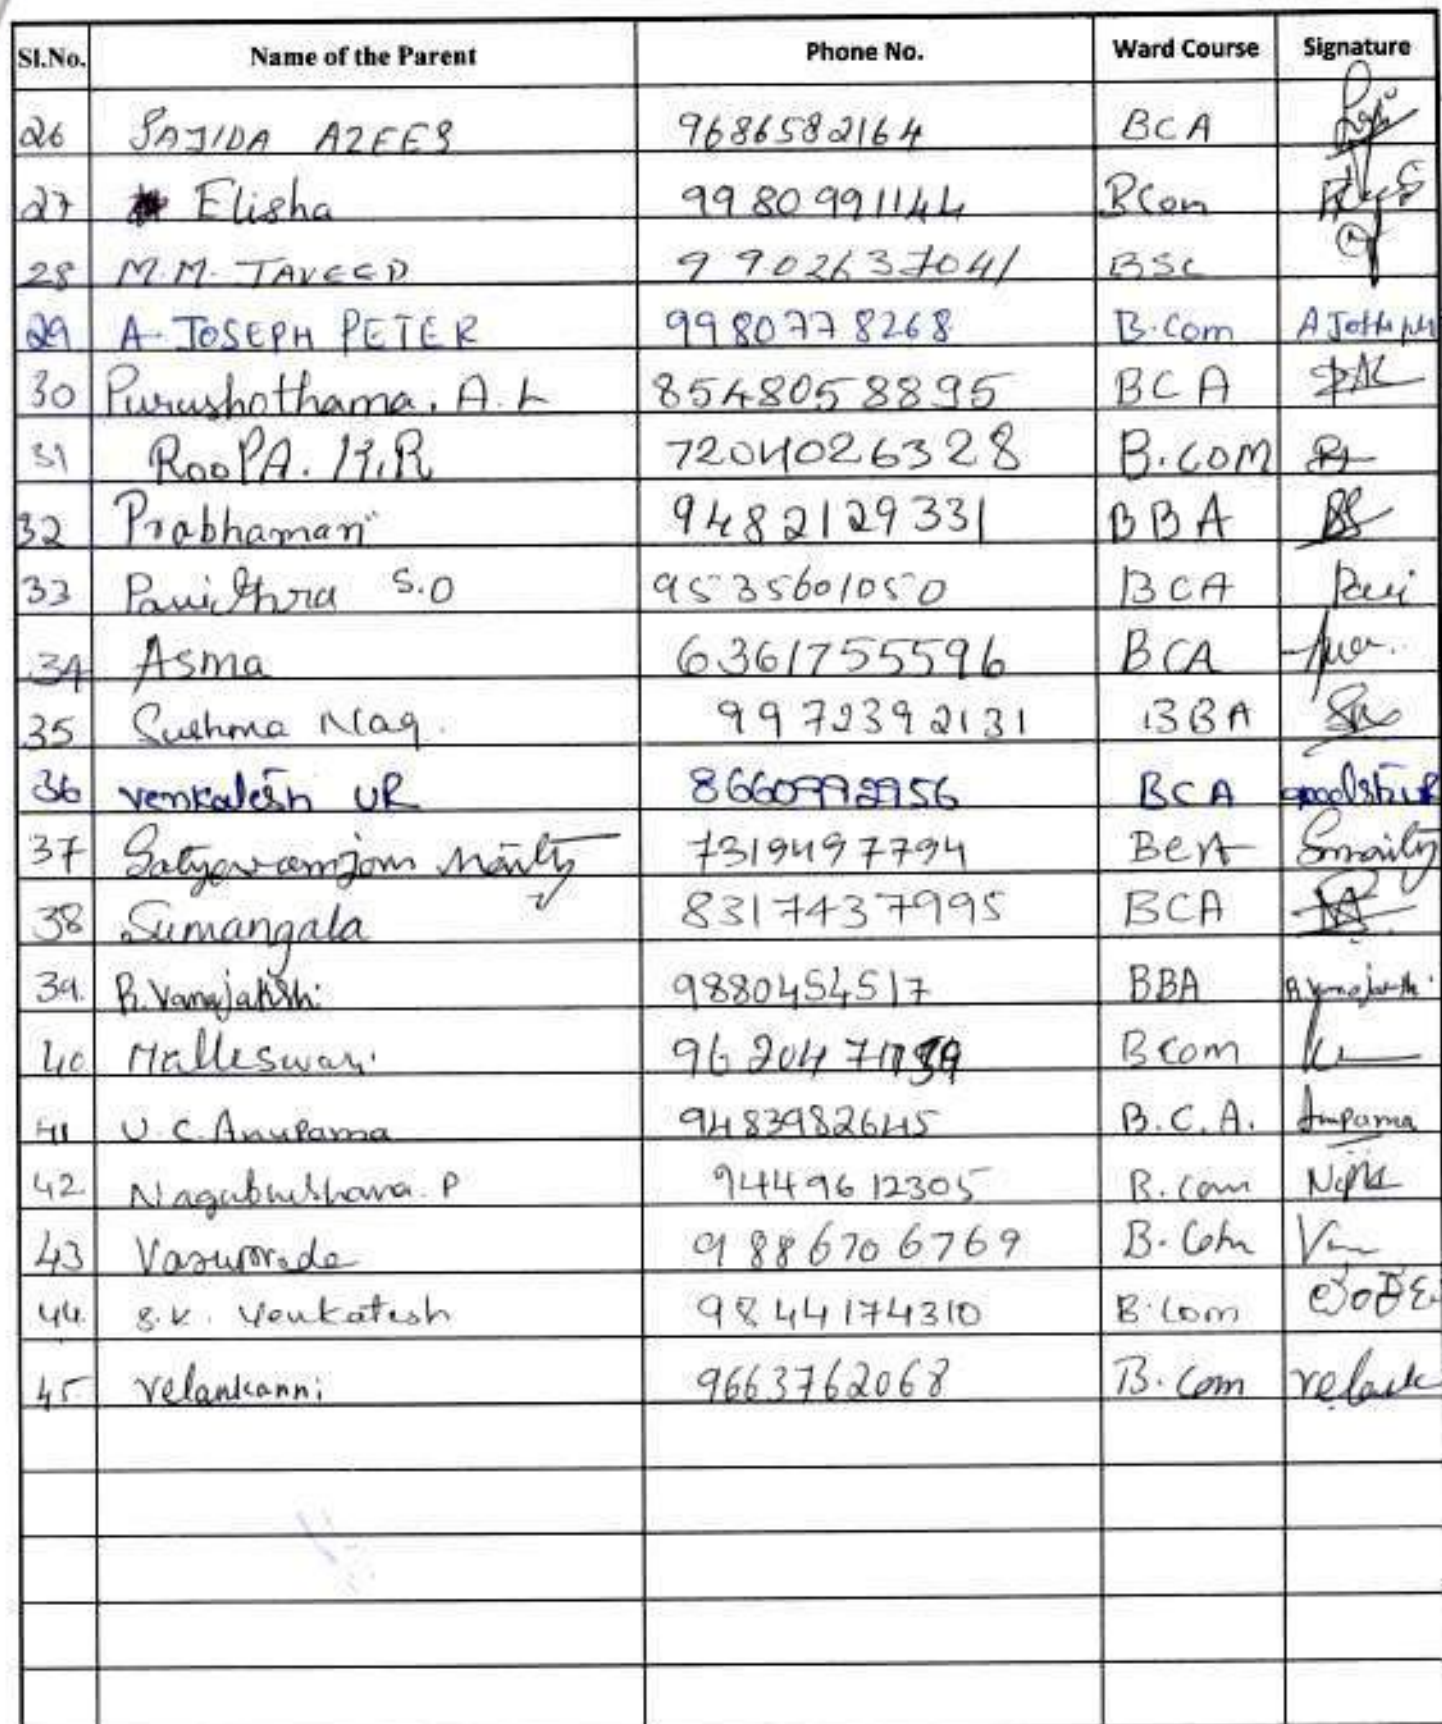 Sl.No. Name of the Parent Phone No. Ward Course Signature
26 SAJIDA AZEES 9686582164 BCA
27 Elisha 9980991144 BCom
28 M.M. TAVEED 9902637041 BSC
29 A. JOSEPH PETER 9980778268 B.Com
30 Purushothama. A. L 8548058895 BCA
31 RooPA. K.R 7204026328 B.COM
32 Prabhamani 9482129331 BBA
33 Pavithra S.O 9535601050 BCA
34 Asma 6361755596 BCA
35 Sushma Nag. 9972392131 BBA
36 venkatesh UR BCA
37 Maity 7319497794 BCA Smaity
38 Sumangala 8317437995 BCA
39. R. Vanajakshi 9880454517 BBA R Vanajakshi
40 Malleswari BCom
41 U.C. Anupama 9483982645 B.C.A. Anupama
42 Nagabhushana. P 9449612305 B.com
43 9886706769 B.Com
44. S.V. Venkatesh 9844174310 B.Com
45 velankanni 9663762068 B.Com